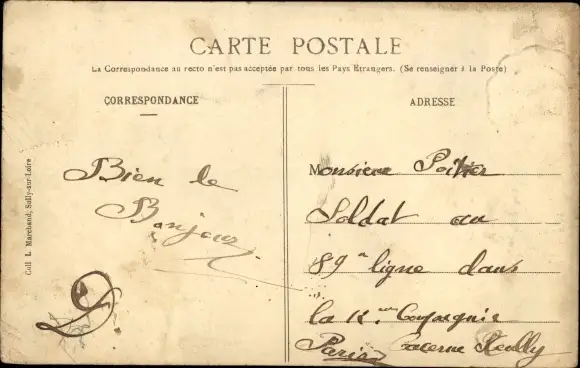 CARTE POSTALE
La Correspondance au recto n'est pas acceptée par tous les Pays Etrangers. (Se renseigner à la Poste)
CORRESPONDANCE
Bien le
Bonjour
Coll L. Marchand, Sully-sur-Loire
ADRESSE
Monsieur
Soldat au
89e ligne dans
la Compagnie
Paris Caserne Reuilly